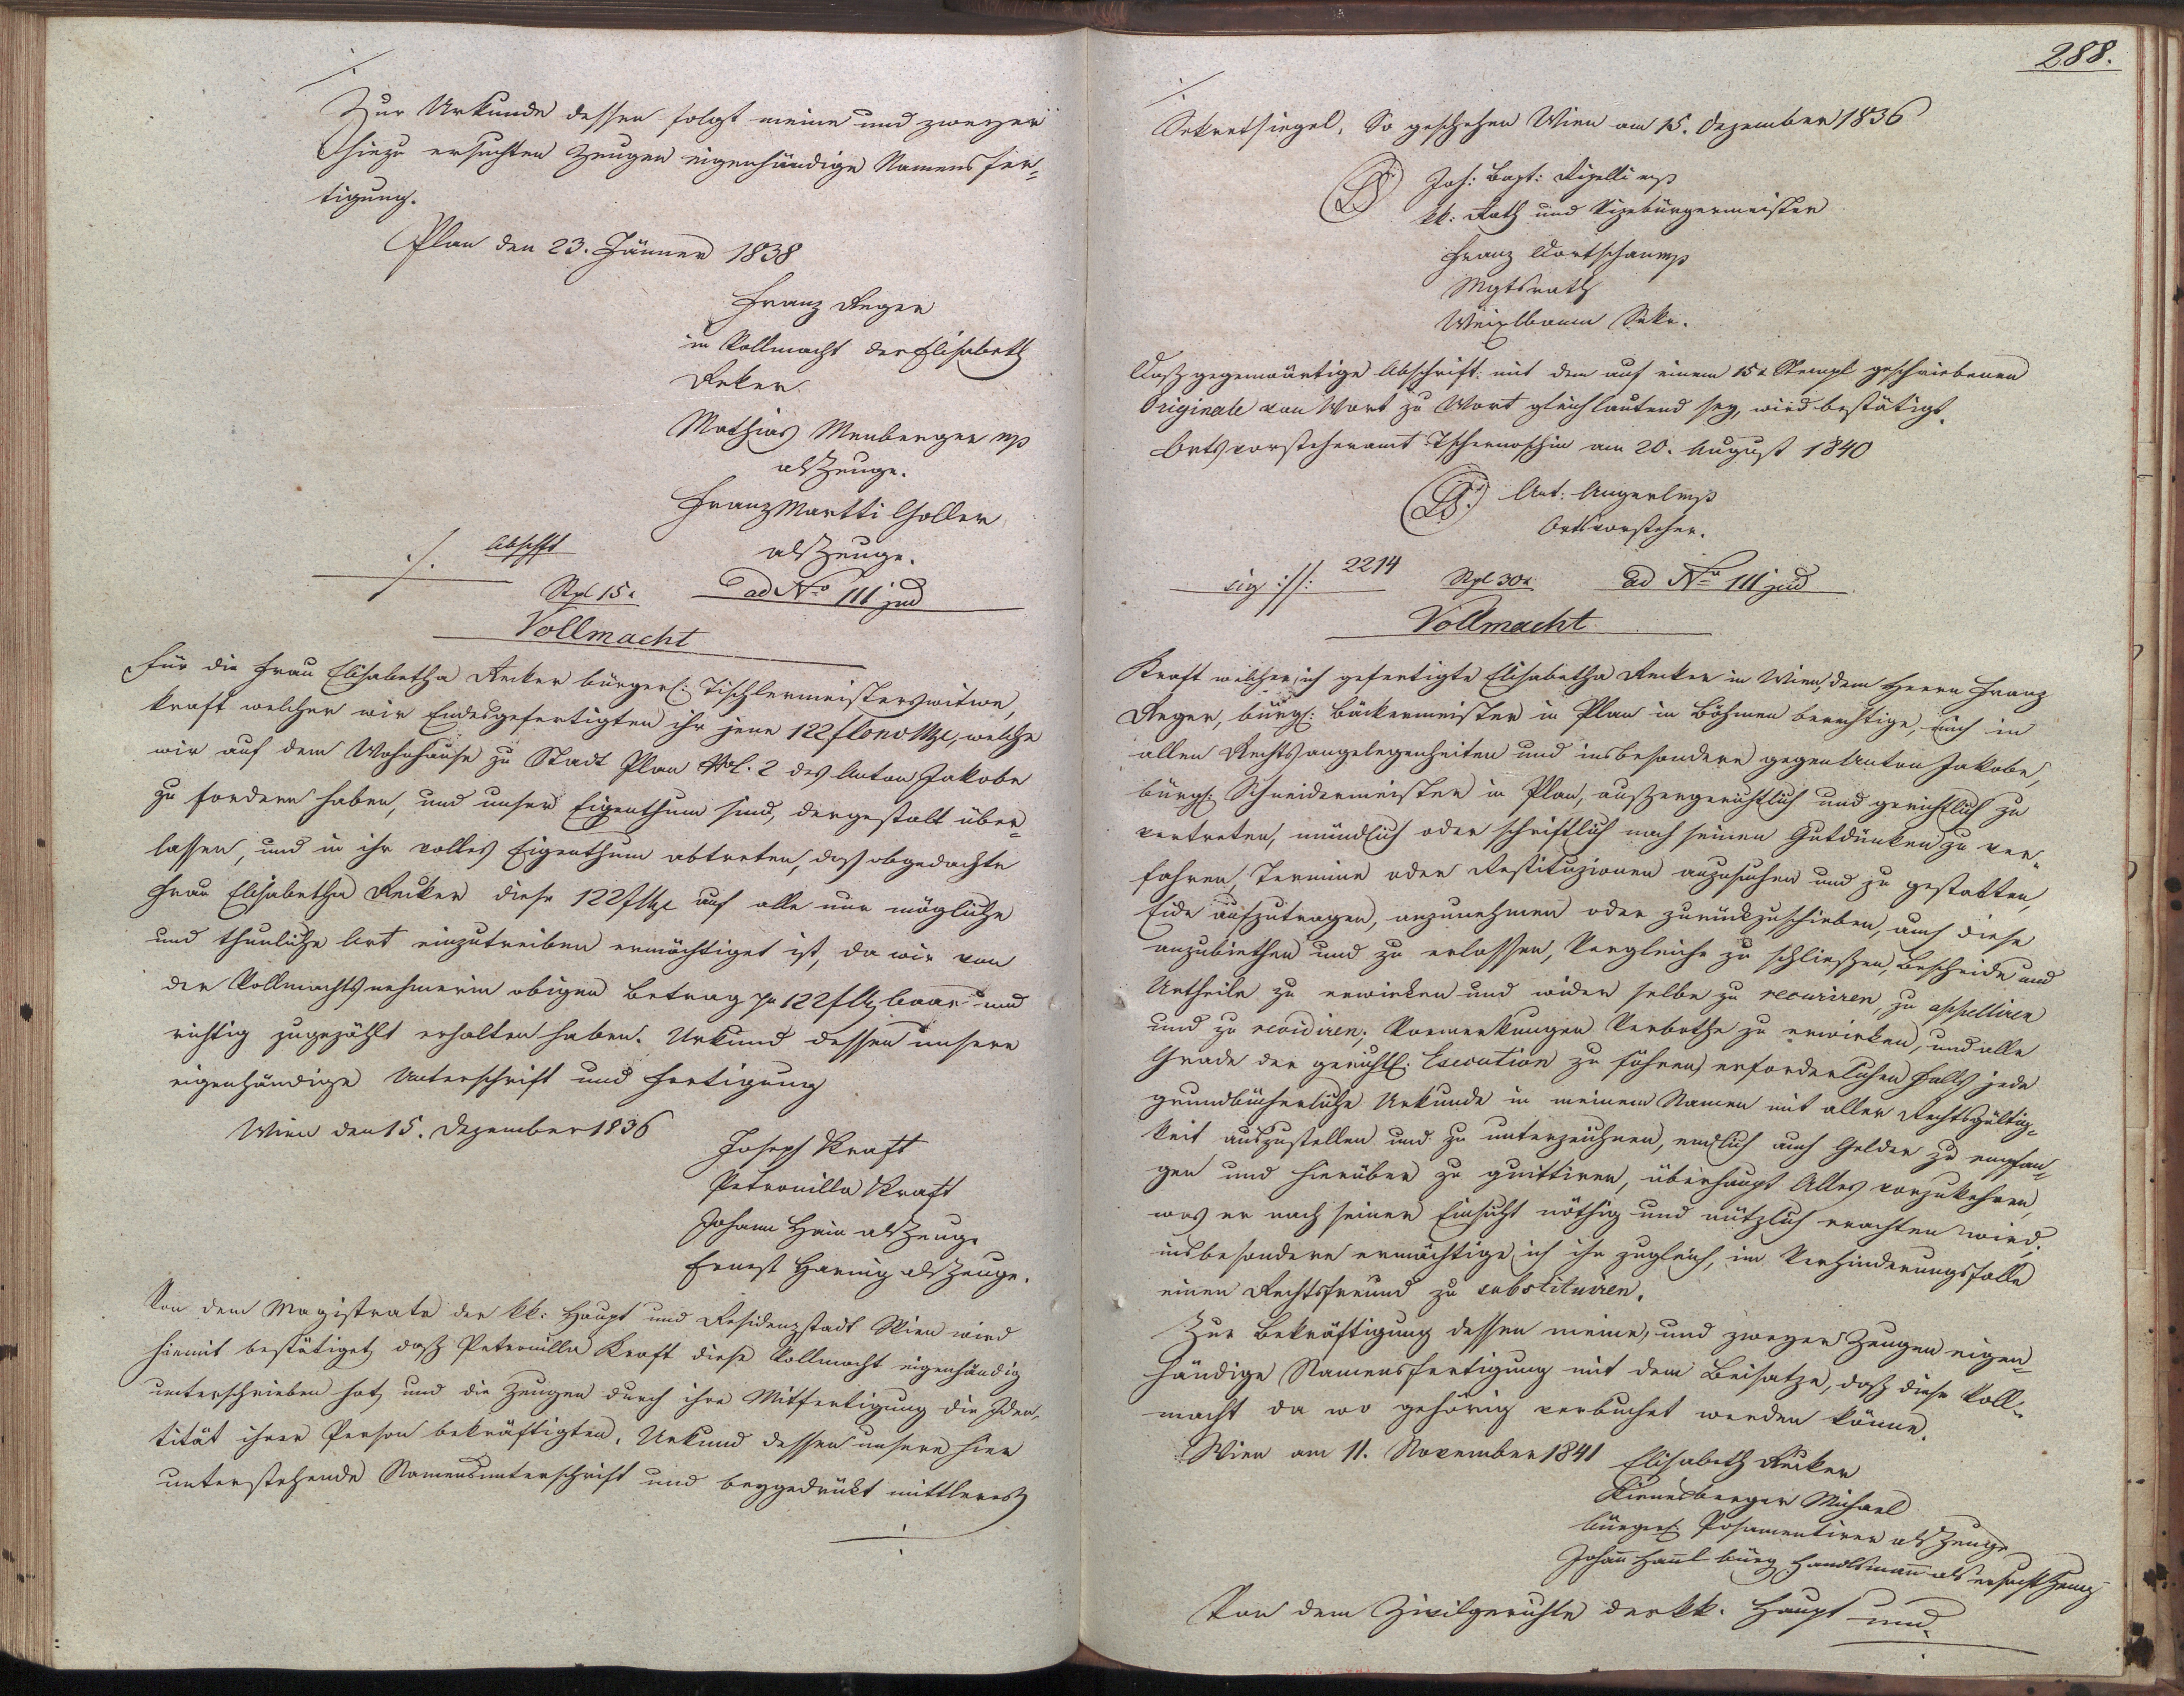 Zur Urkunde dessen folgt meine und zweyer
hiezu ersuchten Zeugen eigenhändige Namensfer-
tigung.
Plan den 23. Jänner 1838
Franz Reger
in Vollmacht der Elisabeth
Reker
Mathias Menberger mp
als Zeuge.
Franz Holler
als Zeuge.
./. Abschft
Stpl 15x ad No 111 jud
Vollmacht
für die Frau Elisabetha Recker bürgerl: Tischlermeisterswitwe,
kraft welcher wir Endesgefertigten ihr jene 122 f Conv Mze, welche
wir auf dem Wohnhause zu Stadt Plan No C. 2 des Anton Jakobe
zu fordern haben, und unser Eigenthum sind, dergestalt über-
lassen, und in ihr volles Eigenthum abtreten, daß obgedachte
Frau Elisabetha Recker diese 122 f Mze auf alle nur mögliche
und thunliche Art einzutreiben ermächtiget ist, da wir von
der Vollmachtsnehmerin obigen Betrag pr 122 f Mz baar und
richtig zugezählt erhalten haben. Urkund dessen unsere
eigenhändige Unterschrift und Fertigung
Wien den 15. Dezember 1836
Joseph Kraft
Petronilla Kraft
Johann Hain als Zeuge
Ernest Haring als Zeuge.
Von dem Magistrate der kk: Haupt und Residenzstadt Wien wird
hiemit bestätiget, daß Petronilla Kraft diese Vollmacht eigenhändig
unterschrieben hat, und die Zeugen durch ihre Mitfertigung die Iden-
tität ihrer Person bekräftigten. Urkund dessen unsere hier
unterstehende Namensunterschrift und beygedrückt mittleres
288.
Sekretsiegel. So geschehen Wien am 15. Dezember 1836
LS Joh: Bapt: Rizelli mp
kk: Rath und Vizebürgermeister
Franz mp
Mgtsrath
Weixlbaum Sekr.
Daß gegenwärtige Abschrift mit dem auf einem 15x Stempl geschriebenen
Originale von Wort zu Wort gleichlautend sey, wird bestätigt.
Ortsvorsteheramt Tschernoschin am 20. August 1840
LS. Ant: Angerl mp
Ortsvorsteher.
sig ://: 2214 Stpl 30x ad No 111 jud
Vollmacht
Kraft welcher ich gefertigte Elisabetha Recker in Wien, dem Herrn Franz
Reger, bürgl: Bäckermeister in Plan in Böhmen berechtige, mich in
allen Rechtsangelegenheiten und insbesondere gegen Anton Jakobe,
bürgl: Schneidermeister in Plan, außergerichtlich und gerichtlich zu
vertreten, mündlich oder schriftlich nach seinen Gutdünken zu ver-
fahren, Termine oder Restituzionen anzusuchen und zu gestatten,
Eide aufzutragen, anzunehmen oder zurückzuschieben, auch diese
anzubiethen und zu erlassen, Vergleiche zu schließen, Bescheide und
Urtheile zu erwirken und wider selbe zu recuriren, zu appelliren
und zu revidiren; Vormerkungen Verbothe zu erwirken, und alle
Grade der gerichtl: Execution zu führen, erforderlichen Falls jede
grundbücherliche Urkunde in meinem Namen mit aller Rechtsgültig-
keit auszustellen und zu unterzeichnen, endlich auch Gelder zu empfan-
gen und hierüber zu quittiren, überhaupt Alles vorzukehren,
was er nach seiner Einsicht nöthig und nützlich erachten wird;
insbesondere ermächtige ich ihn zugleich, im Verhinderungsfalle
einen Rechtsfreund zu substituiren.
Zur Bekräftigung dessen meine, und zweyer Zeugen eigen-
händige Namensfertigung mit dem Beisatze, daß diese Voll-
macht da wo gehörig verbuchet werden könne.
Wien am 11. November 1841 Elisabeth Recker
Kienesberger Michael
bürgerl: Posamentirer als Zeuge
Johañ Hanl bürg Handlsmañ als ersucht Zeug
Von dem Zivilgerichte der kk. Haupt und